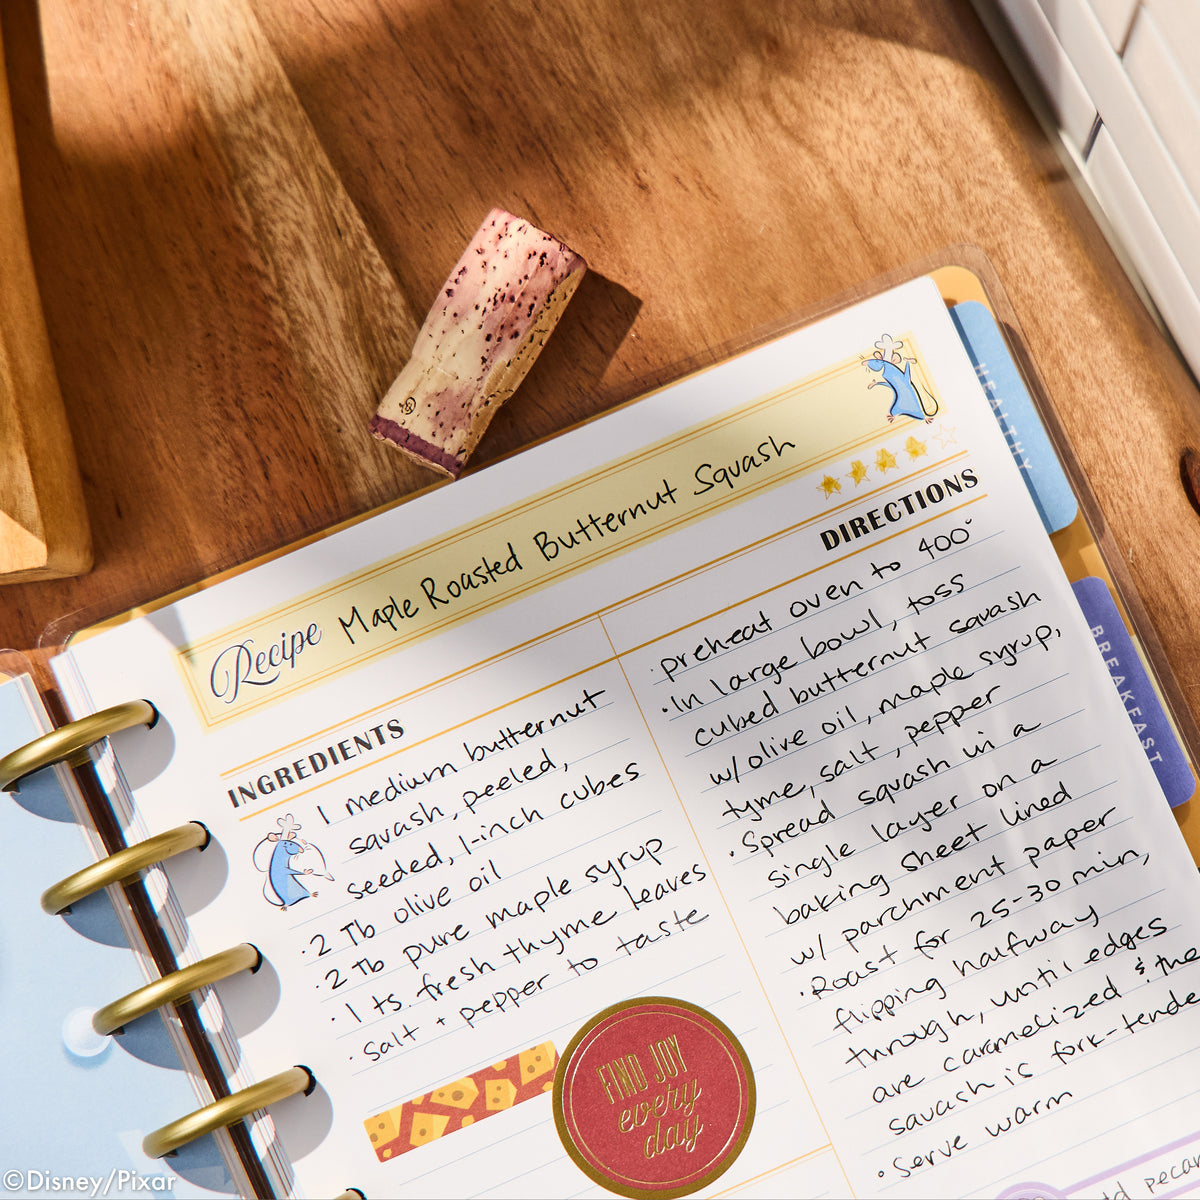 Recipe Maple Roasted Butternut Squash
INGREDIENTS
1 medium butternut
squash, peeled,
seeded, 1-inch cubes
· 2 Tb olive oil
· 2 Tb pure maple syrup
· 1 ts. fresh thyme leaves
· Salt + pepper to taste
FIND JOY
every
day
DIRECTIONS
· preheat oven to 400°
· In large bowl, toss
cubed butternut squash
w/olive oil, maple syrup,
tyme, salt, pepper
· Spread squash in a
single layer on a
baking sheet lined
w/ parchment paper
· Roast for 25-30 min,
flipping halfway
through, until edges
are caramelized & the
squash is fork-tende
· Serve warm
HEALTHY
BREAKFAST
©Disney/Pixar